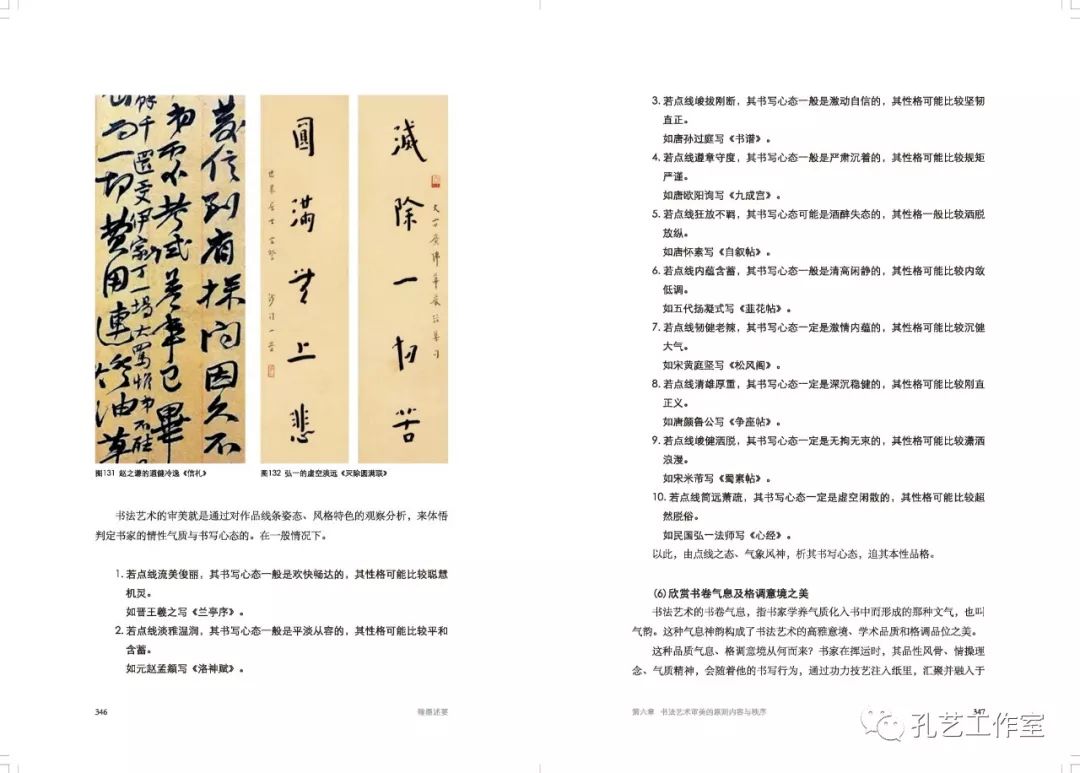 滅除一切苦
大方廣佛華嚴經集句
圓滿無上悲
沙门一音
图131 赵之谦的遒健冷逸《信札》
图132 弘一的虚空淡远《灭除圆满联》
书法艺术的审美就是通过对作品线条姿态、风格特色的观察分析，来体悟
判定书家的情性气质与书写心态的。在一般情况下。
1. 若点线流美俊丽，其书写心态一般是欢快畅达的，其性格可能比较聪慧
机灵。
如晋王羲之写《兰亭序》。
2. 若点线淡雅温润，其书写心态一般是平淡从容的，其性格可能比较平和
含蓄。
如元赵孟頫写《洛神赋》。
346
翰墨述要
3. 若点线峻拔刚断，其书写心态一般是激动自信的，其性格可能比较坚韧
直正。
如唐孙过庭写《书谱》。
4. 若点线遵章守度，其书写心态一般是严肃沉着的，其性格可能比较规矩
严谨。
如唐欧阳询写《九成宫》。
5. 若点线狂放不羁，其书写心态可能是酒醉失态的，其性格一般比较洒脱
放纵。
如唐怀素写《自叙帖》。
6. 若点线内蕴含蓄，其书写心态一般是清高闲静的，其性格可能比较内敛
低调。
如五代扬凝式写《韭花帖》。
7. 若点线韧健老辣，其书写心态一定是激情内蕴的，其性格可能比较沉健
大气。
如宋黄庭坚写《松风阁》。
8. 若点线清雄厚重，其书写心态一定是深沉稳健的，其性格可能比较刚直
正义。
如唐颜鲁公写《争座帖》。
9. 若点线峻健洒脱，其书写心态一定是无拘无束的，其性格可能比较潇洒
浪漫。
如宋米芾写《蜀素帖》。
10. 若点线简远萧疏，其书写心态一定是虚空闲散的，其性格可能比较超
然脱俗。
如民国弘一法师写《心经》。
以此，由点线之态、气象风神，析其书写心态，追其本性品格。
(6) 欣赏书卷气息及格调意境之美
书法艺术的书卷气息，指书家学养气质化入书中而形成的那种文气，也叫
气韵。这种气息神韵构成了书法艺术的高雅意境、学术品质和格调品位之美。
这种品质气息、格调意境从何而来？书家在挥运时，其品性风骨、情操理
念、气质精神，会随着他的书写行为，通过功力技艺注入纸里，汇聚并融入于
第六章 书法艺术审美的原则内容与秩序
347
孔艺工作室